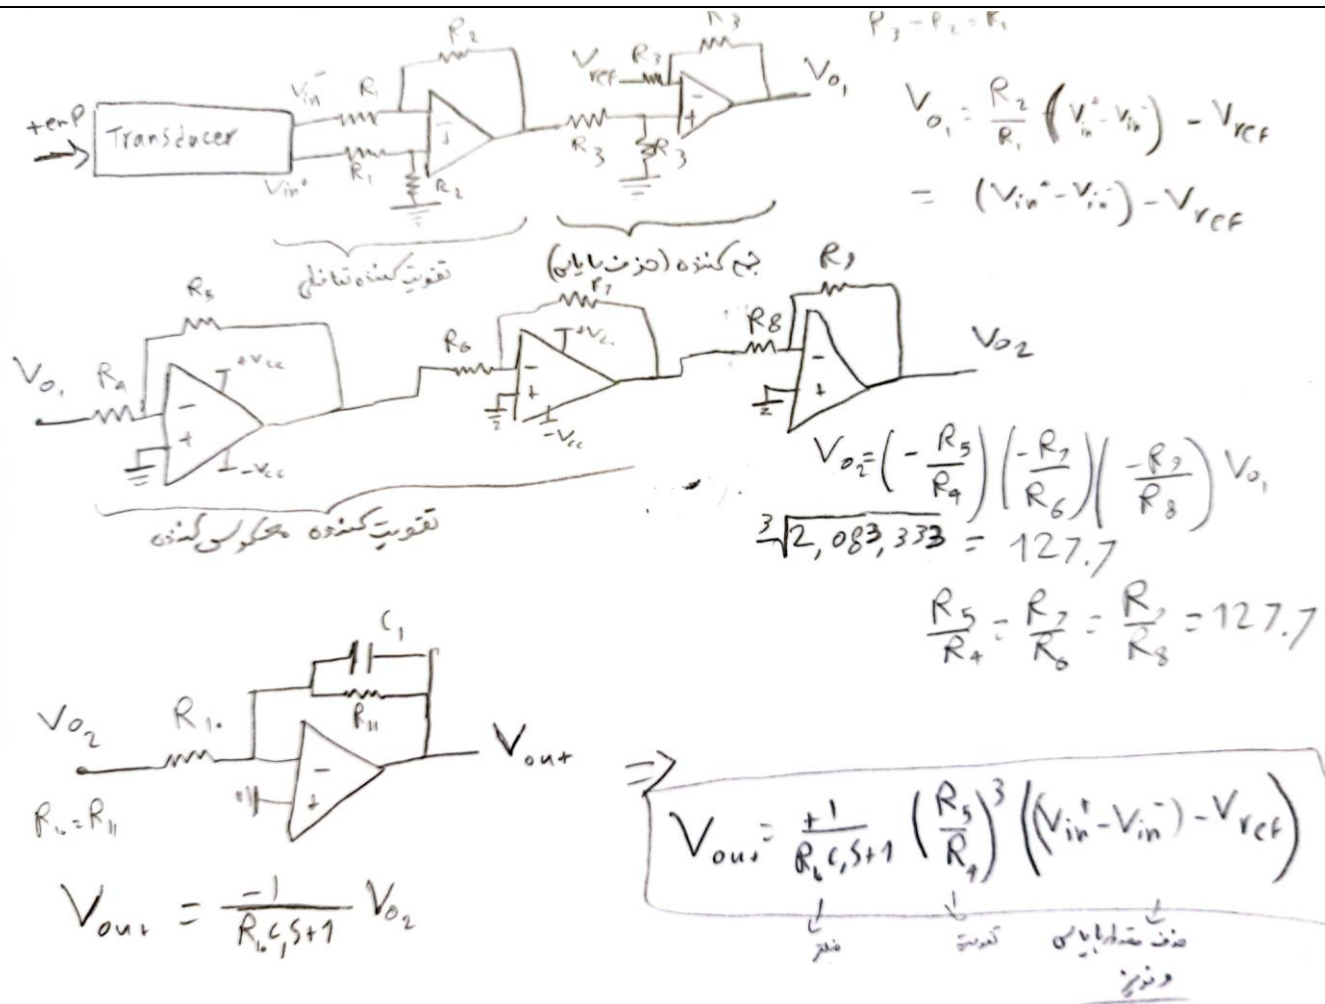 R₃ = R₂ = R₁
+emp
Transducer
Vin⁻ R₁ R₂
Vin⁺ R₁ R₂
Vref R₃ R₃
R₃ R₃
Vo₁
Vo₁ = R₂/R₁ (Vin⁺ - Vin⁻) - Vref
= (Vin⁺ - Vin⁻) - Vref
تقویت کننده تفاضلی
جمع کننده (حذف بایاس)
Vo₁ R₄ R₅ +Vcc -Vcc
R₆ R₇ +Vcc -Vcc
R₈ R₉ Vo₂
تقویت کننده معکوس کننده
Vo₂ = (-R₅/R₄)(-R₇/R₆)(-R₉/R₈) Vo₁
³√2,083,333 = 127.7
R₅/R₄ = R₇/R₆ = R₉/R₈ = 127.7
Vo₂ R₁₀ C₁ R₁₁ Vout
R₁₀ = R₁₁
Vout = -1/(R₁₀C₁S+1) Vo₂
⇒ Vout = +1/(R₁₀C₁S+1) (R₅/R₄)³ ((Vin⁺ - Vin⁻) - Vref)
فیلتر
تقویت
حذف مقدار بایاس
و نویز